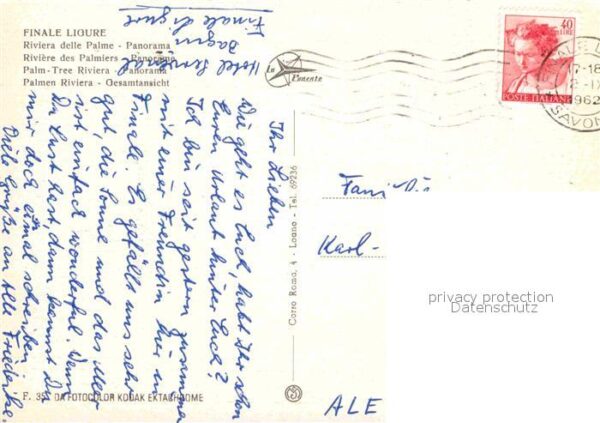 FINALE LIGURE
Riviera delle Palme - Panorama
Rivière des Palmiers - Panorama
Palm-Tree Riviera - Panorama
Palmen Riviera - Gesamtansicht
Hotel
Finale Ligure
La Ponente
40
LIRE
POSTE ITALIANE
17-18
1962
SAVONA
Ihr Lieben
Wie geht es Euch, habt Ihr schon
Euren Urlaub hinter Euch?
Ich bin seit gestern zusammen
mit einer Freundin hier in
Finale. Es gefällt uns sehr
gut, die Sonne und das Meer
ist einfach wundervoll. Wenn
Du Lust hast, dann kannst Du
mir doch einmal schreiben
Viele Grüße an Alle Friederike.
Corso Roma, 4 - Loano - Tel. 69236
Karl-
privacy protection
Datenschutz
F. 35 DA FOTOCOLOR KODAK EKTACHROME
ALE